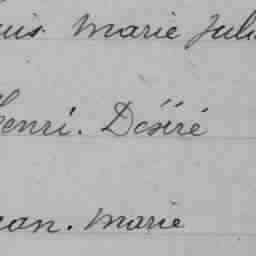 uis Marie Jul
Henri. Désiré
ean. Marie